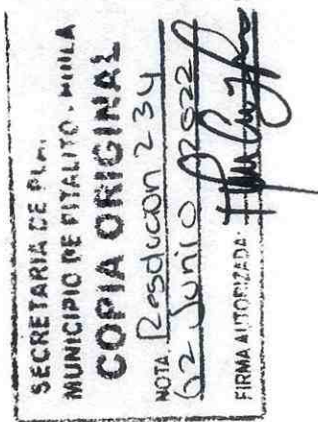 SECRETARIA DE PLA.
MUNICIPIO DE PITALITO - HUILA
COPIA ORIGINAL
NOTA: Resolucion 234
02 Junio 2022
FIRMA AUTORIZADA: